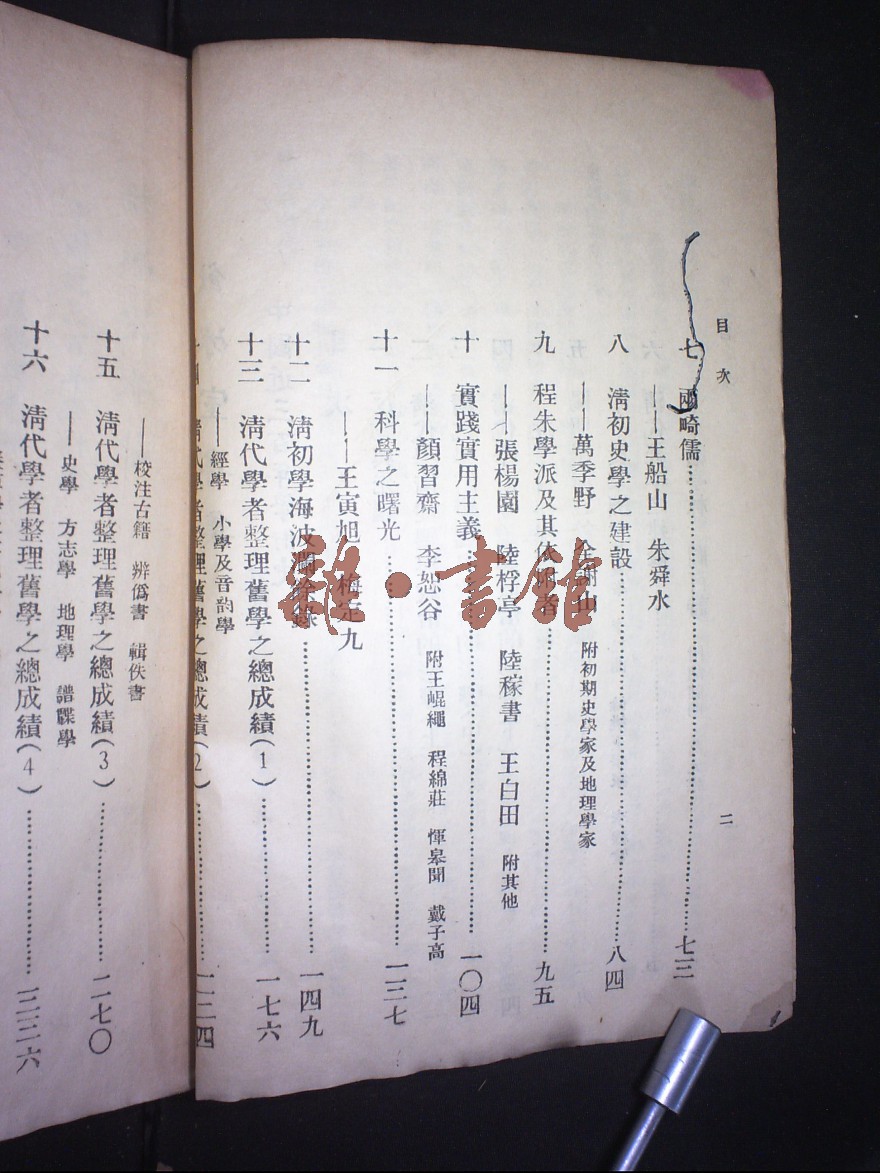 目次
七 兩畸儒…………七三
——王船山 朱舜水
八 淸初史學之建設…………八四
——萬季野 全謝山 附初期史學家及地理學家
九 程朱學派及其依附者…………九五
——張楊園 陸桴亭 陸稼書 王白田 附其他
十 實踐實用主義…………一〇四
——顏習齋 李恕谷 附王崐繩 程綿莊 惲皋聞 戴子高
十一 科學之曙光…………一三七
——王寅旭 梅定九
十二 淸初學海波瀾餘錄…………一四九
十三 淸代學者整理舊學之總成績(1)…………一七六
——經學 小學及音韵學
淸代學者整理舊學之總成績(2)…………二二四
——校注古籍 辨僞書 輯佚書
十五 淸代學者整理舊學之總成績(3)…………二七〇
——史學 方志學 地理學 譜牒學
十六 淸代學者整理舊學之總成績(4)…………三三六
二
雜·書館